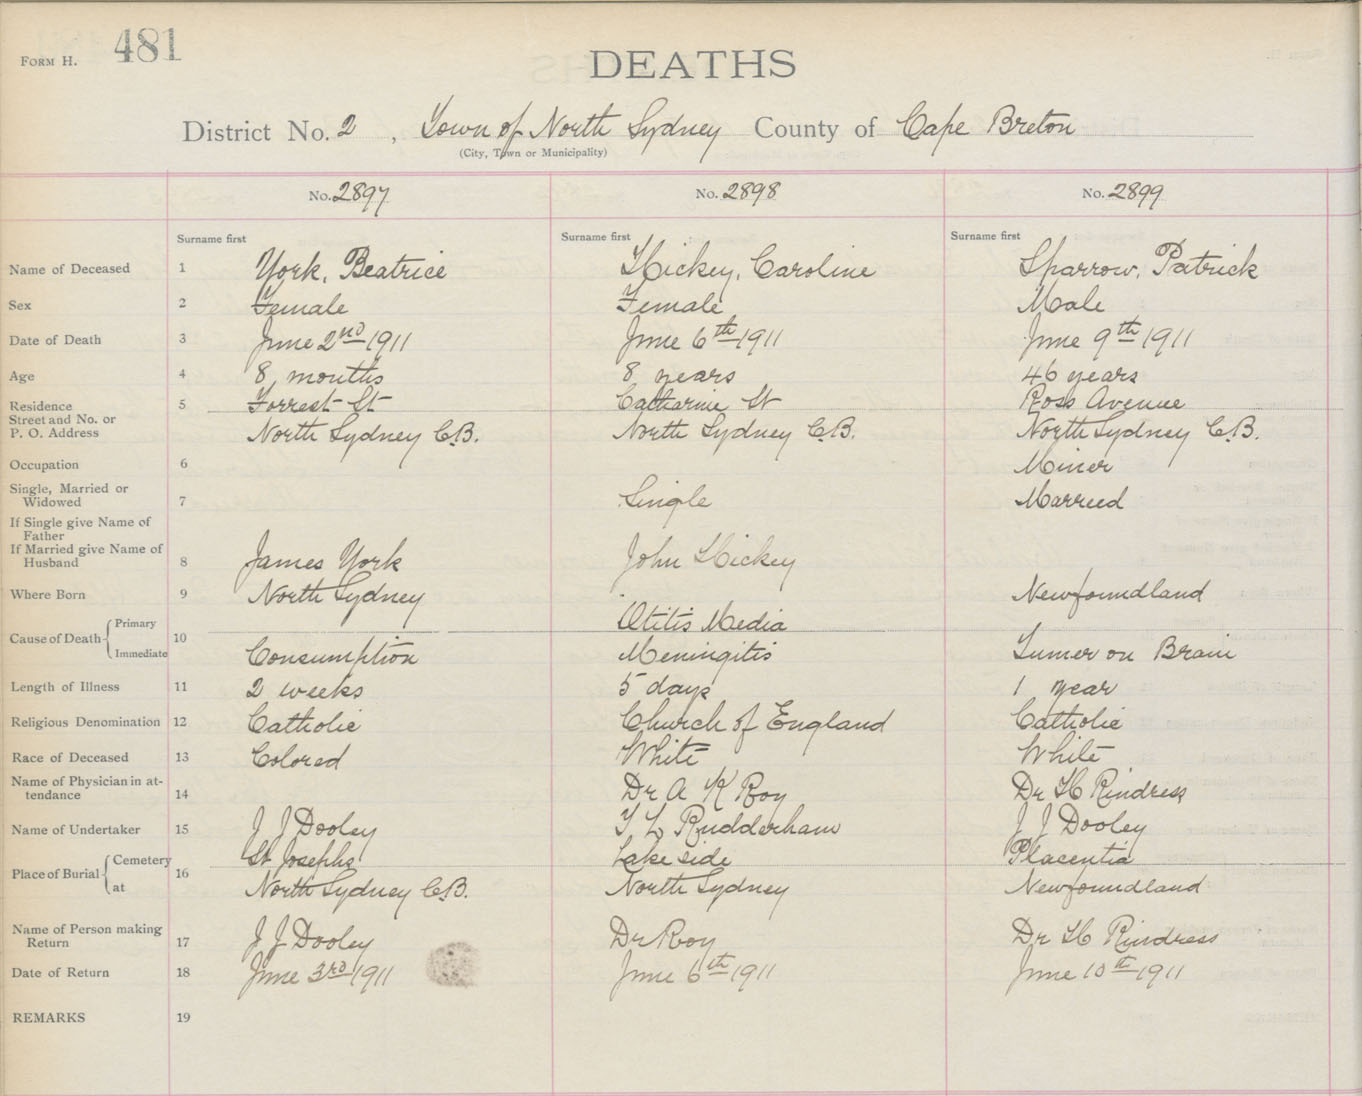 FORM H. 481
DEATHS
District No. 2 , Town of North Sydney County of Cape Breton
(City, Town or Municipality)
No. 2897 No. 2898 No. 2899
Surname first Surname first Surname first
Name of Deceased 1 York, Beatrice Hickey, Caroline Sparrow, Patrick
Sex 2 Female Female Male
Date of Death 3 June 2nd 1911 June 6th 1911 June 9th 1911
Age 4 8 months 8 years 46 years
Residence 5 Forrest St Catharine St Ross Avenue
Street and No. or
P. O. Address North Sydney C.B. North Sydney C.B. North Sydney C.B.
Occupation 6 Miner
Single, Married or
Widowed 7 Single Marreed
If Single give Name of
Father
If Married give Name of
Husband 8 James York John Hickey
Where Born 9 North Sydney Newfoundland
Cause of Death 10 Primary Otitis Media
Immediate Consumption Meningitis Tumer on Brain
Length of Illness 11 2 weeks 5 days 1 year
Religious Denomination 12 Catholic Church of England Catholic
Race of Deceased 13 Colored White White
Name of Physician in at-
tendance 14 Dr A K Roy Dr H Rindress
Name of Undertaker 15 J J Dooley T L Rudderham J J Dooley
Place of Burial 16 Cemetery St Josephs Lake side Placentia
at North Sydney C.B. North Sydney Newfoundland
Name of Person making
Return 17 J J Dooley Dr Roy Dr H Rindress
Date of Return 18 June 3rd 1911 June 6th 1911 June 10th 1911
REMARKS 19